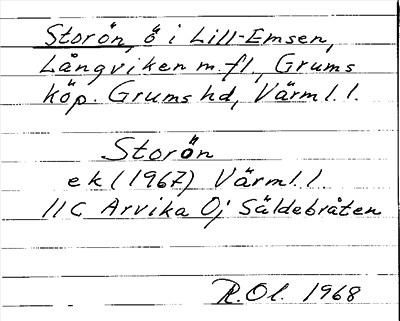 Storön, ö i Lill-Emsen,
Långviken m.fl, Grums
köp. Grums hd, Värml. l.
Storön
ek (1967) Värml. l.
11C Arvika Öj Säldebråten
R.Ol. 1968